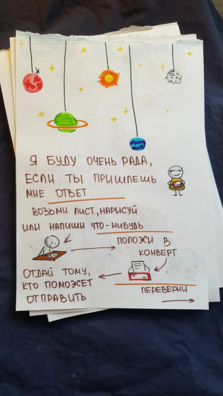 Я БУДУ ОЧЕНЬ РАДА,
ЕСЛИ ТЫ ПРИШЛЕШЬ
МНЕ ОТВЕТ
ВОЗЬМИ ЛИСТ, НАРИСУЙ
ИЛИ НАПИШИ ЧТО-НИБУДЬ
ПОЛОЖИ В
КОНВЕРТ
ОТДАЙ ТОМУ,
КТО ПОМОЖЕТ
ОТПРАВИТЬ
ПЕРЕВЕРНИ